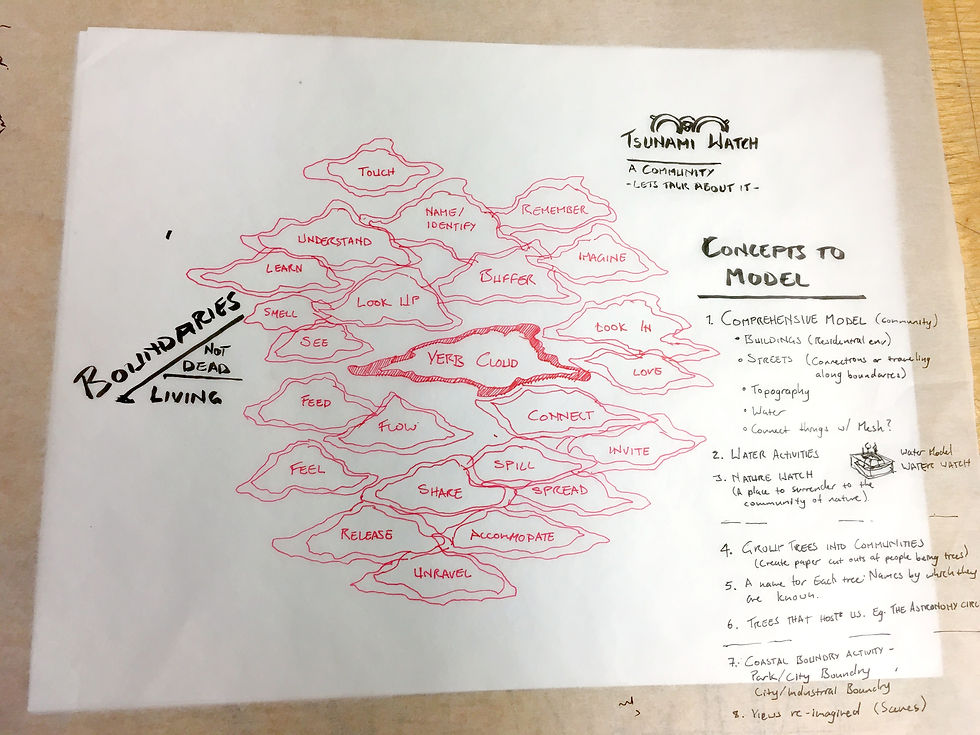 TSUNAMI WATCH
A COMMUNITY
-LETS TALK ABOUT IT-
TOUCH
NAME/
IDENTIFY
REMEMBER
UNDERSTAND
IMAGINE
LEARN
BUFFER
LOOK UP
SMELL
LOOK IN
SEE
VERB CLOUD
LOVE
FEED
CONNECT
FLOW
INVITE
FEEL
SPILL
SHARE
SPREAD
RELEASE
ACCOMMODATE
UNRAVEL
BOUNDARIES
NOT
DEAD
LIVING
CONCEPTS TO
MODEL
1. COMPREHENSIVE MODEL (community)
• BUILDINGS (Residential env)
• STREETS (Connections or travelling
along boundaries)
• Topography
• Water
• Connect things w/ Mesh?
2. WATER ACTIVITIES
Water Model
WATER WATCH
3. NATURE WATCH
(A place to surrender to the
community of nature).
4. GROUP TREES INTO COMMUNITIES
(Create paper cut outs of people being trees)
5. A name for Each tree: Names by which they
are known.
6. TREES THAT HOST US. Eg. THE ASTRONOMY CIRC
7. COASTAL BOUNDRY ACTIVITY -
Park/City Boundry
City/Industrial Boundry
8. Views re-imagined (Scenes)